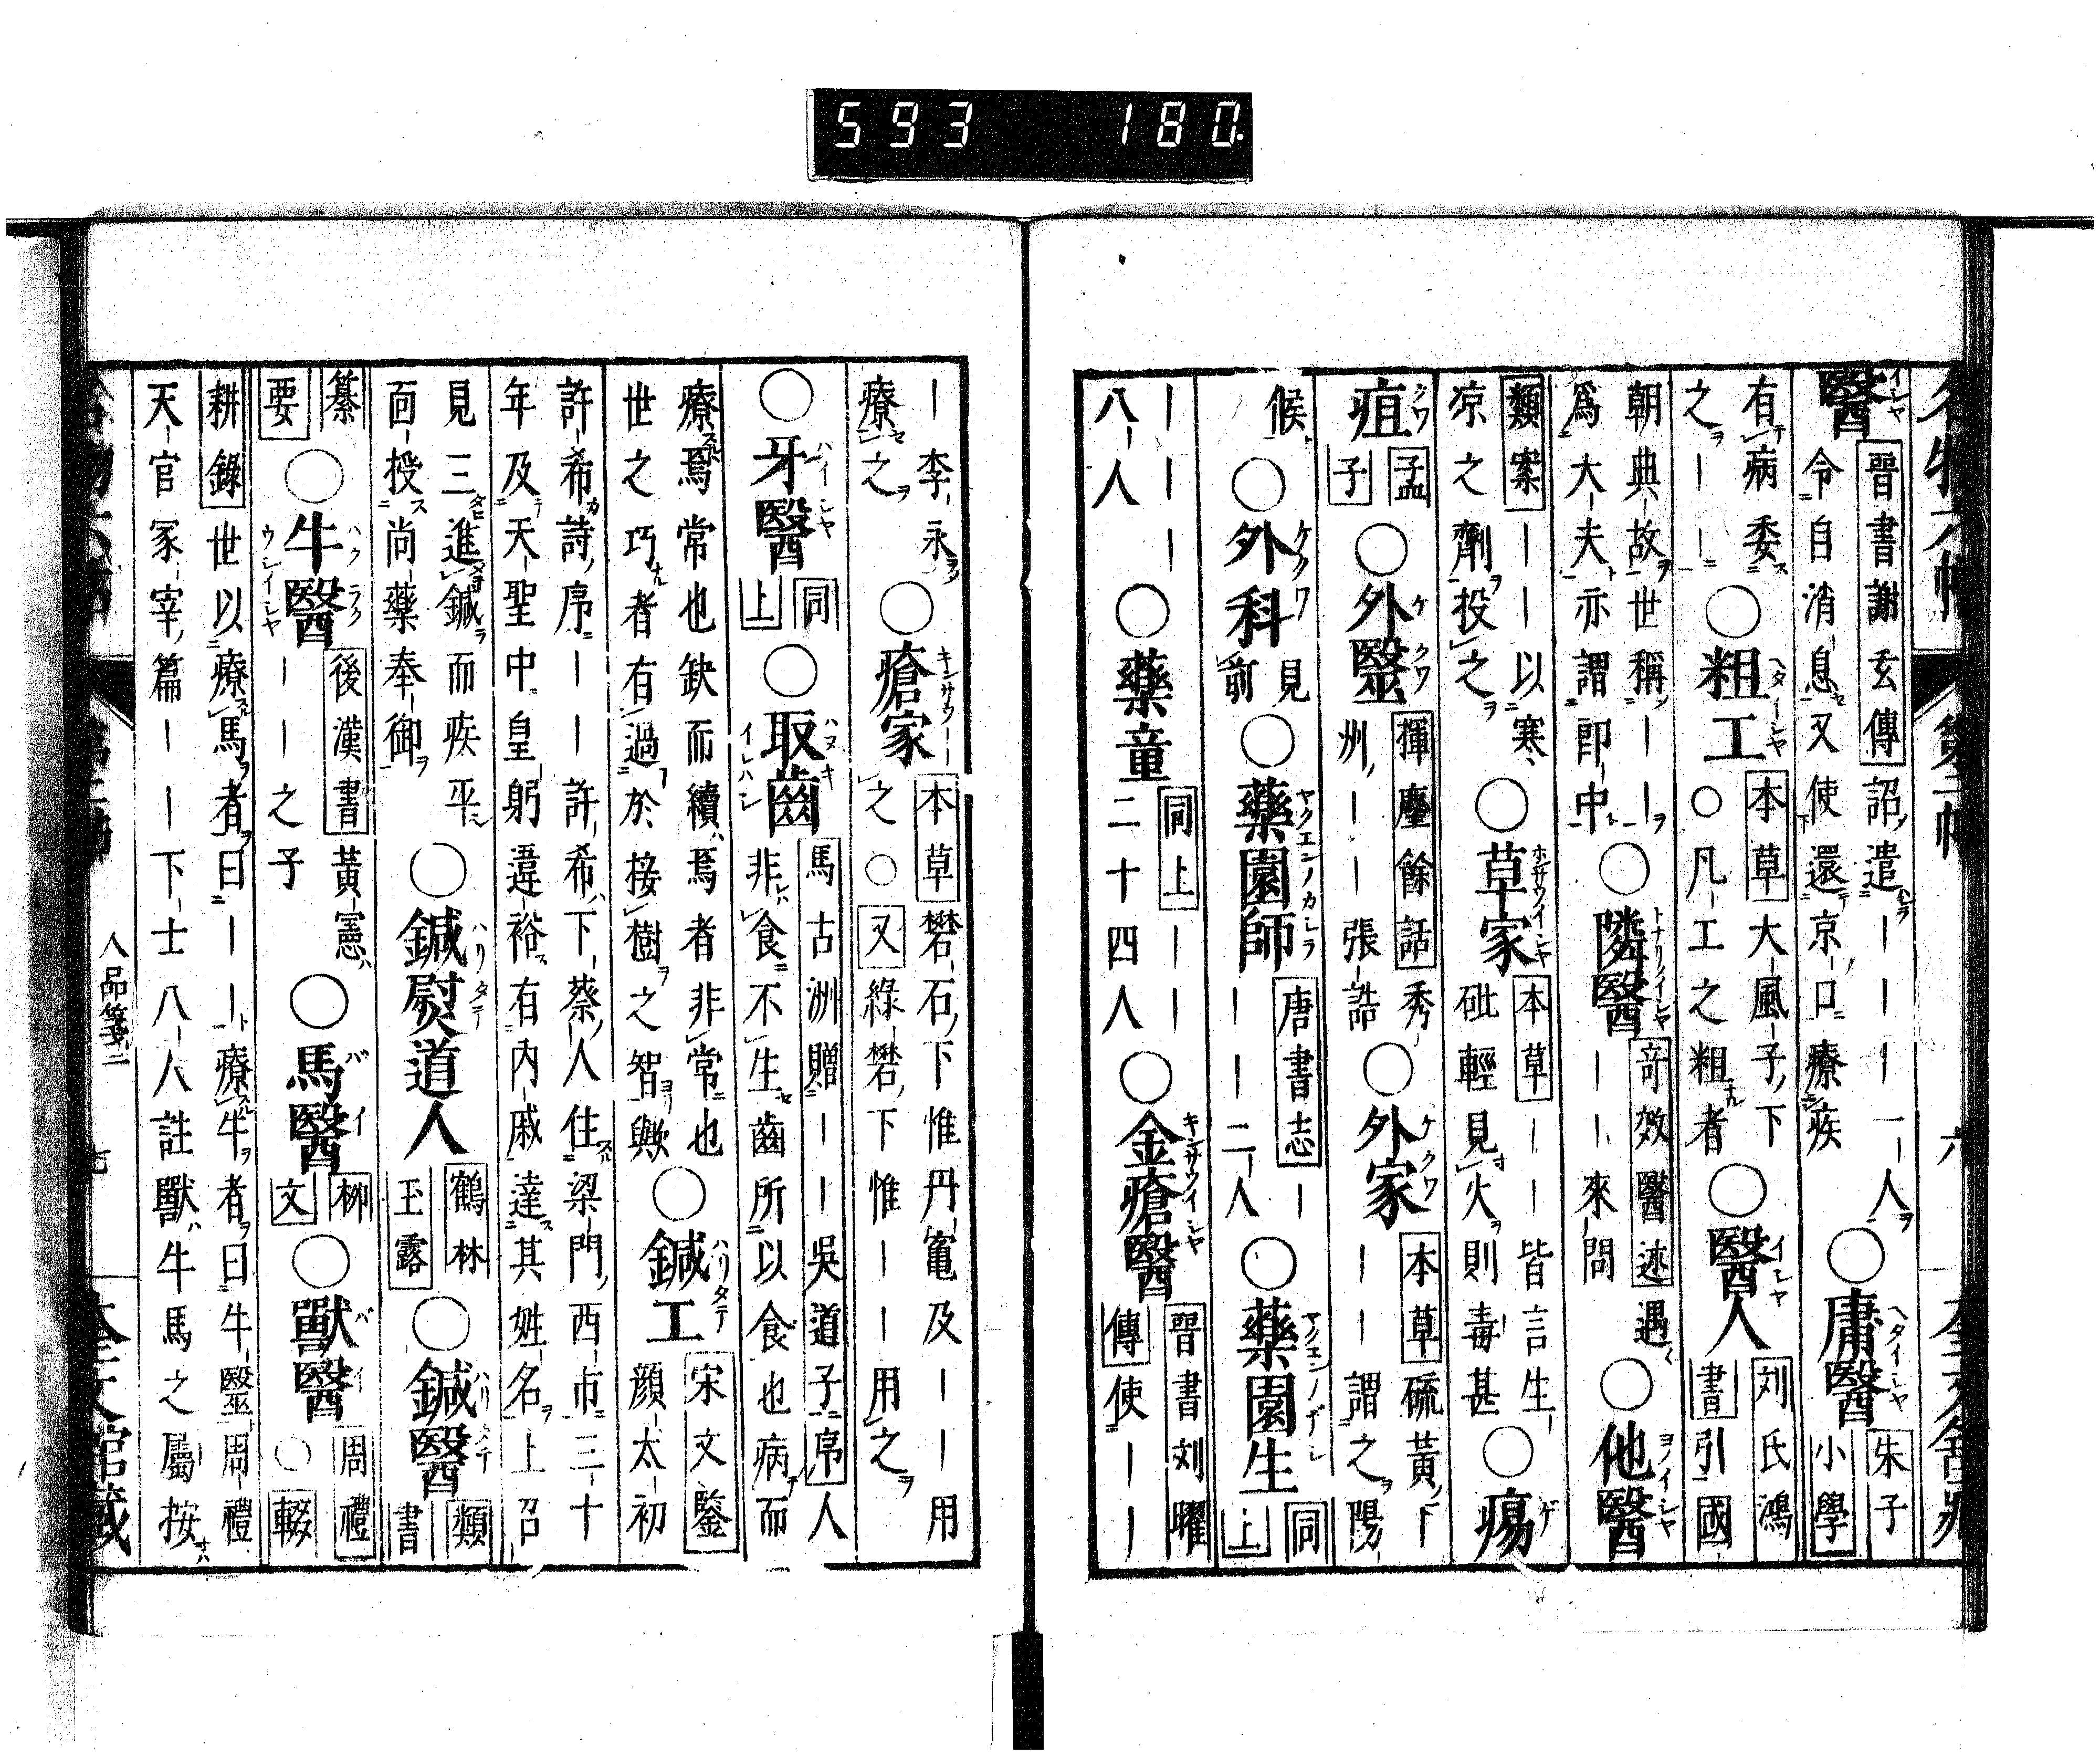 593 180
醫 晉書謝玄傳 詔遣｜｜｜一人
令自消息又使還京口療疾 ○庸醫 朱子小學
有病委之｜｜ ○粗工 本草 大風子下○凡工之粗者 ○醫人 刘氏鴻書 引國
朝典故世稱｜｜爲大夫亦謂郎中 ○隣醫 奇效醫述 遇｜｜來問 ○他醫
類案 ｜｜以寒凉之劑投之 ○草家 本草 ｜｜皆言生砒輕見火則毒甚 ○瘍
疽 孟子 ○外醫 揮麈餘話 秀洲｜｜張誥 ○外家 本草 硫黃下｜｜謂之陽
候 ○外科 見前 ○藥園師 唐書志 ｜｜｜二人 ○藥園生 同上
｜｜｜八人 ○藥童 同上 ｜｜二十四人 ○金瘡醫 晉書刘曜傳 使｜｜
｜李永療之 ○瘡家 本草 礬石下惟丹竈及｜｜用之○又 綠礬下惟｜｜用之
○牙醫 同上 ○取齒 馬古洲贈｜｜吳道子序 人非食不生齒所以食也病而
療焉常也缺而續焉者非常也世之巧者有過於接樹之智歟 ○鍼工 宋文鑒 顔太初
許希詩序｜｜許希下蔡人住梁門西市三十年及天聖中皇躬違裕有内戚達其姓名上召
見三進鍼而疾平面授尚藥奉御 ○鍼熨道人 鶴林玉露 ○鍼醫 類書
纂要 ○牛醫 後漢書 黃憲｜｜之子 ○馬醫 柳文 ○獸醫 周禮 ○輟
耕錄 世以療馬者曰｜｜療牛者曰牛醫周禮
天官冢宰篇｜｜下士八人註獸牛馬之屬按
人品箋二
七
六